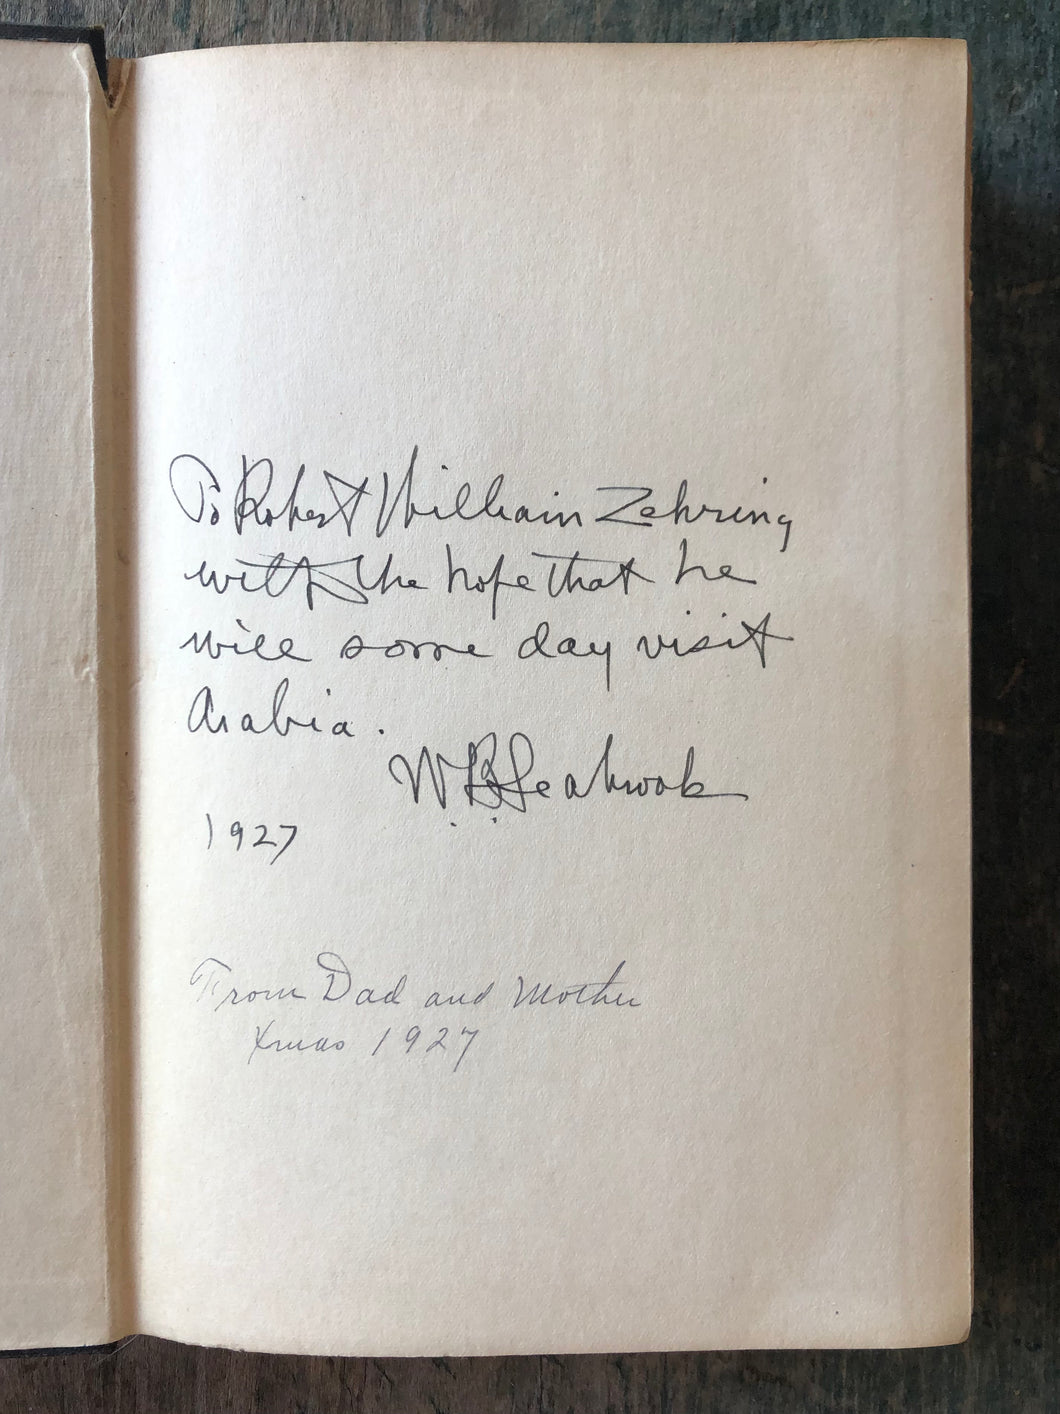 To Robert William Zehring
with the hope that he
will some day visit
Arabia.
W. B. Seabrook
1927
From Dad and Mother
Xmas 1927